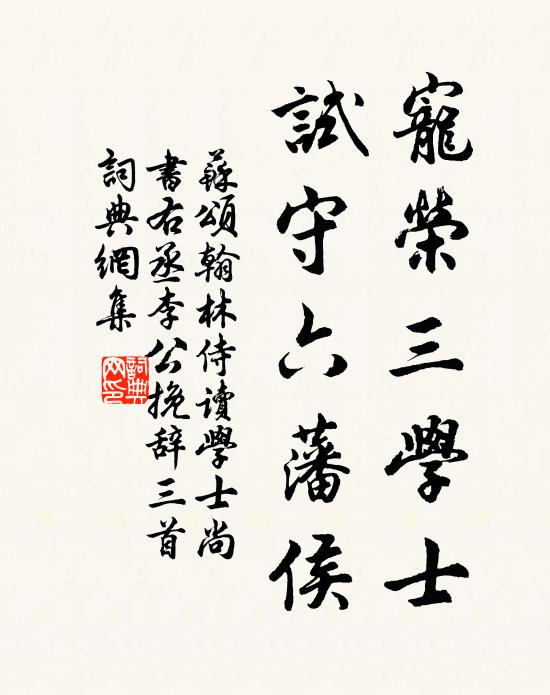 寵榮三學士
試守六藩侯
蘇頌翰林侍讀學士尚
書右丞李公挽辞三首
詞典網集
詞典
网印